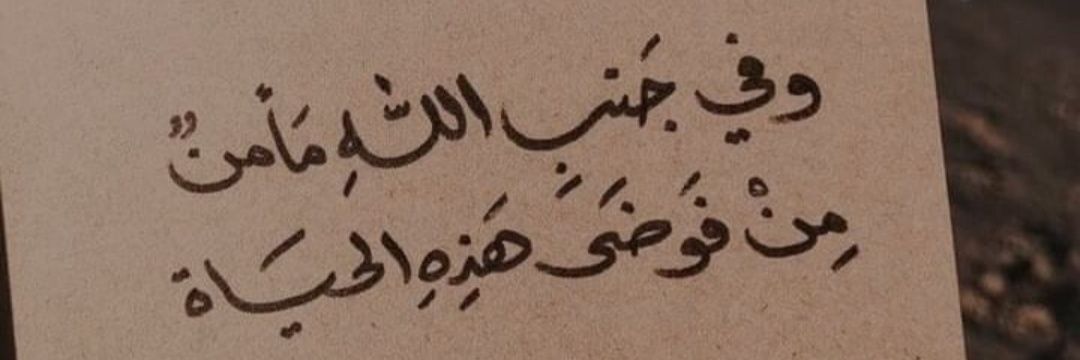 وفي جَنبِ اللَّهِ مَأمنٌ
مِنْ فَوَضَىَ هَذِهِ الحيَاة